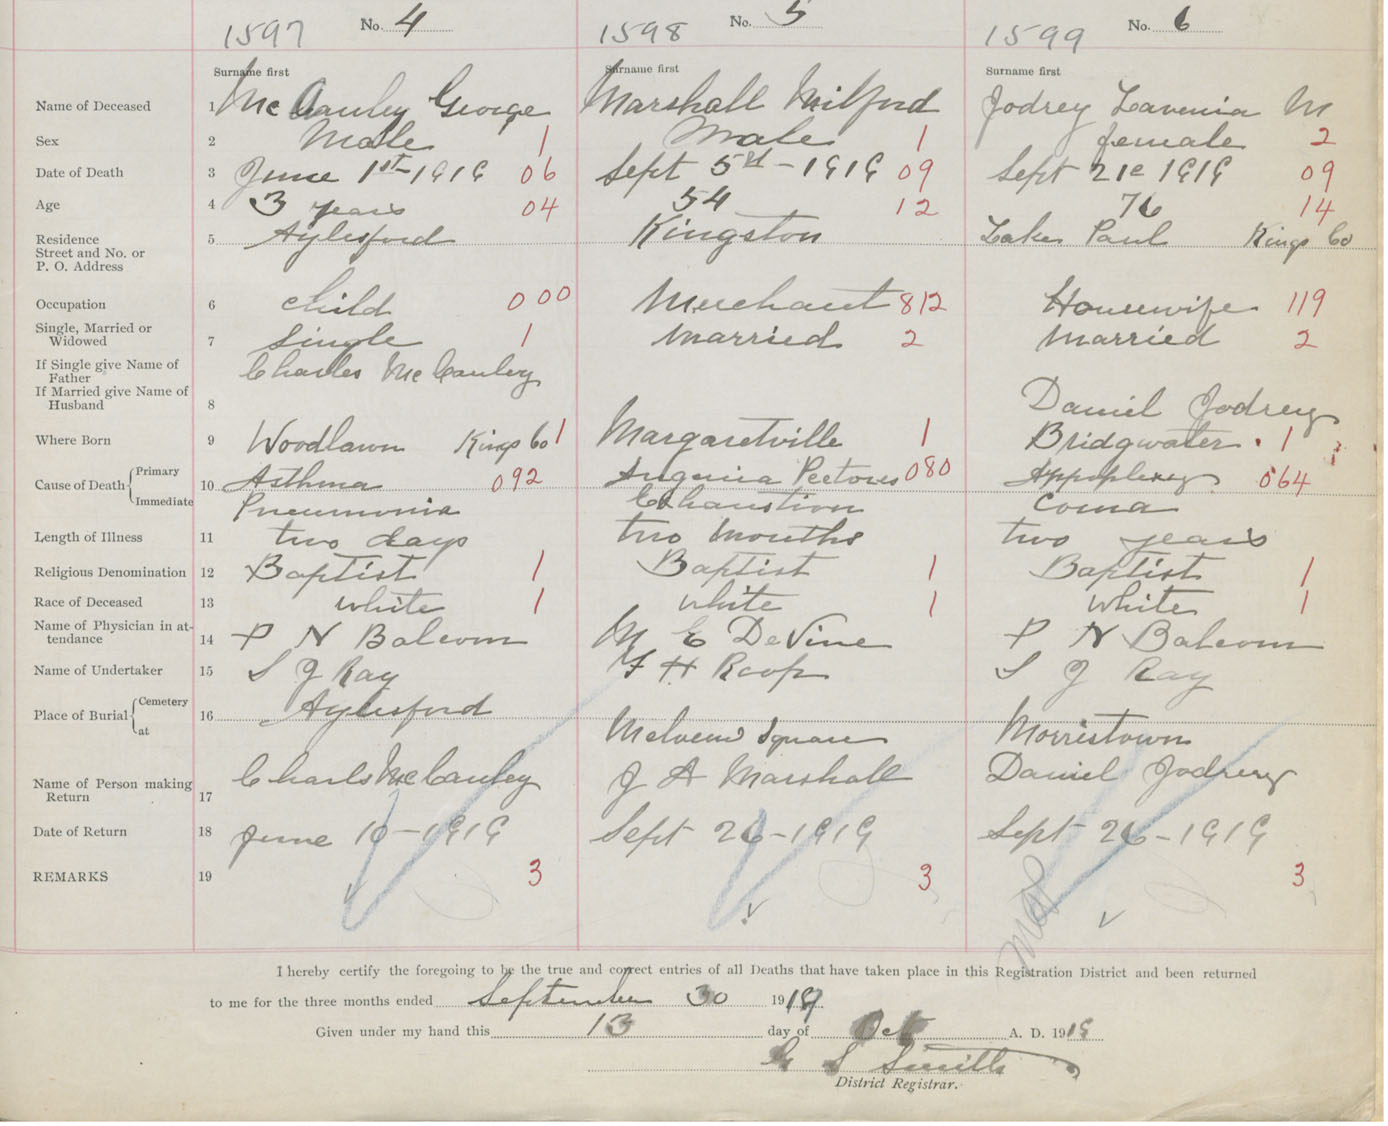 1597 No. 4 1598 No. 5 1599 No. 6
Surname first Surname first Surname first
Name of Deceased 1 McCauley George Marshall Milford Jodrey Lavenia M
Sex 2 Male 1 Male 1 female 2
Date of Death 3 June 1st - 1919 06 Sept 5th - 1919 09 Sept 21e 1919 09
Age 4 3 years 04 54 12 76 14
Residence
Street and No. or
P. O. Address 5 Aylesford Kingston Lake Paul Kings Co
Occupation 6 child 000 Merchant 812 Housewife 119
Single, Married or
Widowed 7 Single 1 married 2 married 2
If Single give Name of
Father Charles McCauley
If Married give Name of
Husband 8 Daniel Jodrey
Where Born 9 Woodlawn Kings Co 1 Margaretville 1 Bridgwater 1
Cause of Death Primary 10 Asthma 092 Anguina Pectoris 080 Appoplexey 064
Immediate Pneumonia Exhaustion Coma
Length of Illness 11 two days two months two years
Religious Denomination 12 Baptist 1 Baptist 1 Baptist 1
Race of Deceased 13 white 1 white 1 white 1
Name of Physician in at-
tendance 14 P N Balcom M E DeVine P N Balcom
Name of Undertaker 15 S J Ray F H Roop S J Ray
Place of Burial Cemetery 16 Aylesford
at Melvern Square Morristown
Name of Person making
Return 17 Charls McCauley J A Marshall Daniel Jodrey
Date of Return 18 June 10 - 1919 Sept 26 - 1919 Sept 26 - 1919
REMARKS 19 3 3 3
I hereby certify the foregoing to be the true and correct entries of all Deaths that have taken place in this Registration District and been returned
to me for the three months ended September 30 1919
Given under my hand this 13 day of Oct A. D. 1919
S Smith
District Registrar.